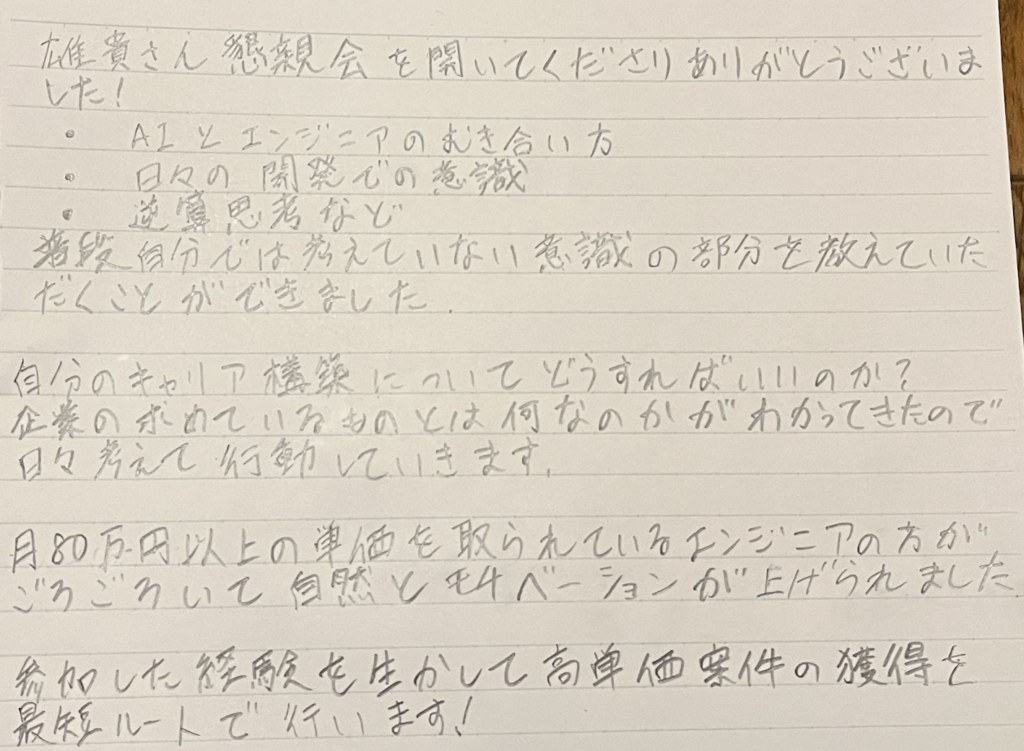 雄貴さん懇親会を開いてくださりありがとうございま
した!
・ AIとエンジニアのむき合い方
・ 日々の開発での意識
・ 逆算思考など
普段自分では考えていない意識の部分を教えていた
だくことができました.
自分のキャリア構築についてどうすればいいのか?
企業の求めているものとは何なのかがわかってきたので
日々考えて行動していきます.
月80万円以上の単価を取られているエンジニアの方が
ごろごろいて自然とモチベーションが上げられました
参加した経験を生かして高単価案件の獲得を
最短ルートで行います!